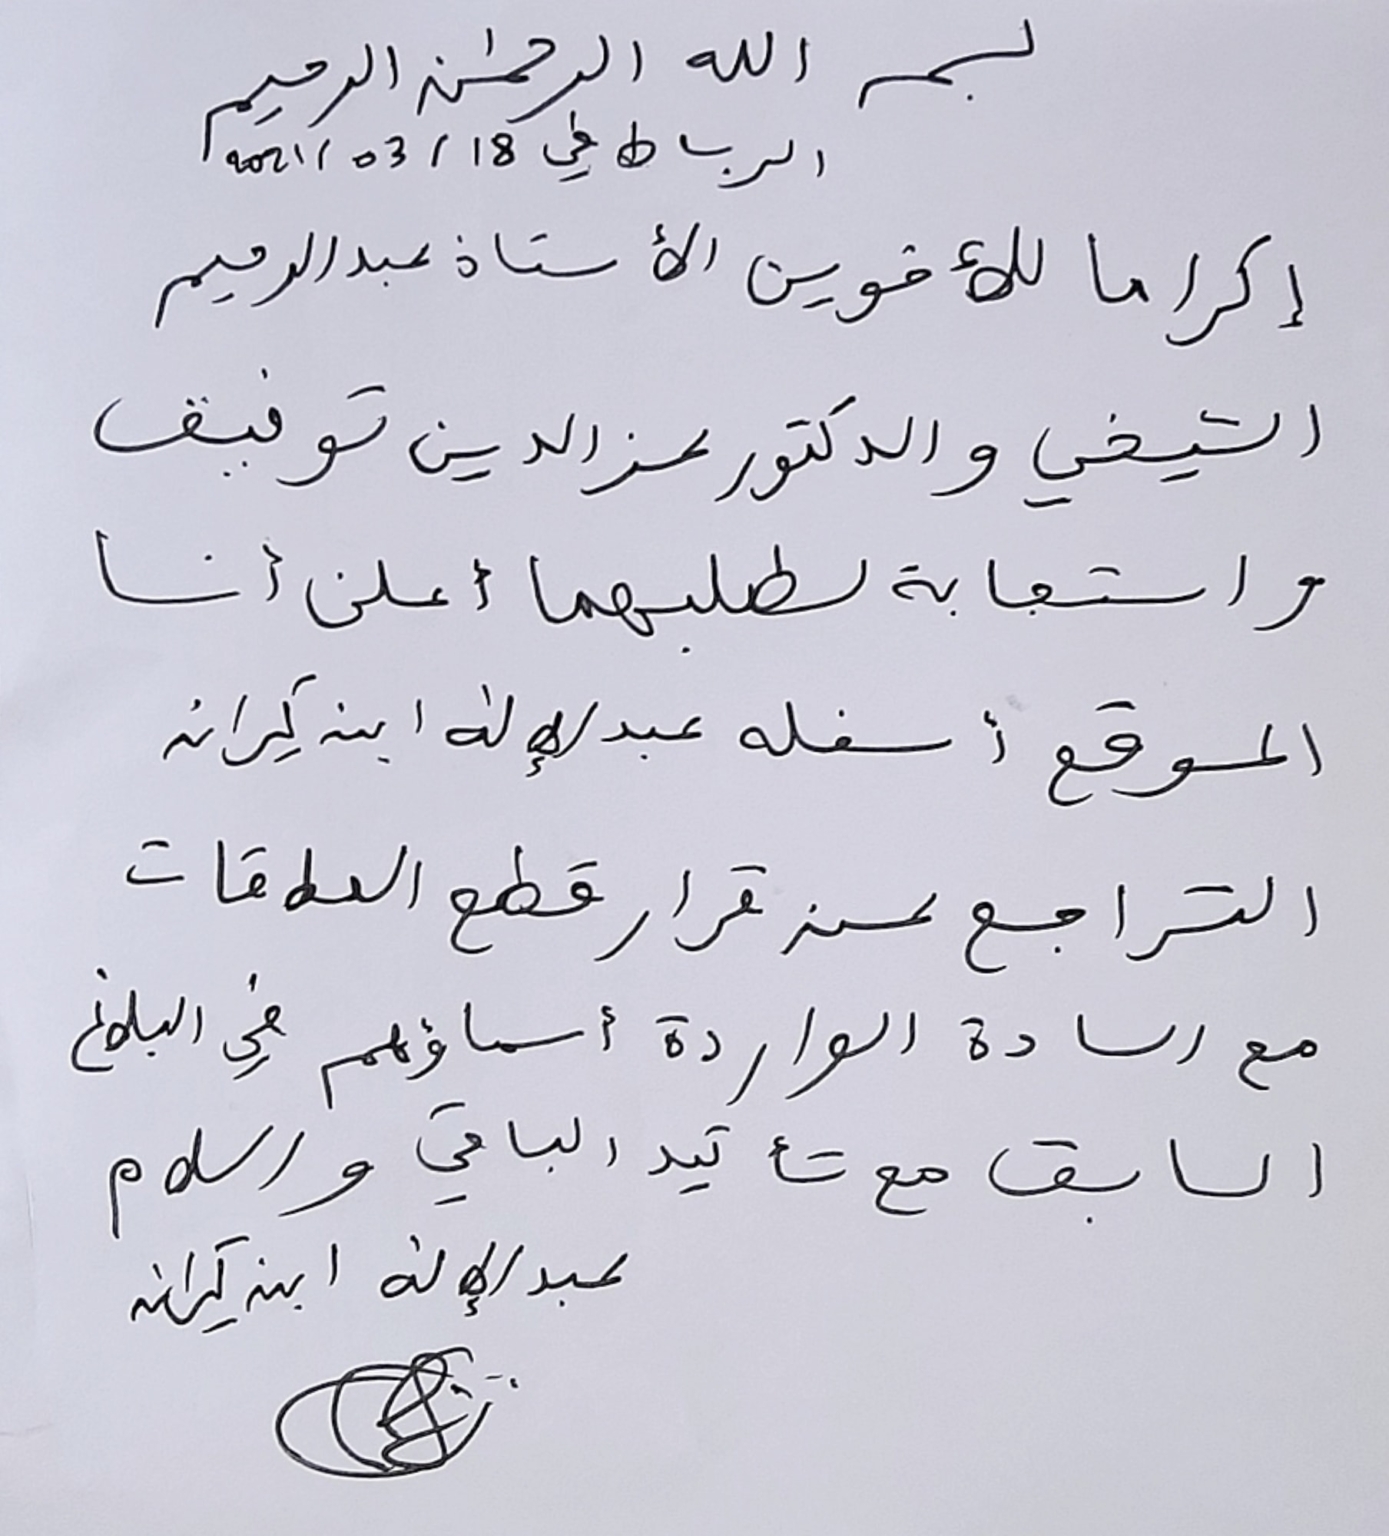 بسم الله الرحمٰن الرحيم
الرباط في 18/03/2021
إكراما للأخوين الأستاذ عبد الرحيم
الشيخي والدكتور عز الدين توفيق
واستجابة لطلبهما أعلن أنا
الموقع أسفله عبد الإلٰه ابن كيران
التراجع عن قرار قطع العلاقات
مع السادة الواردة أسماؤهم في البلاغ
السابق مع تأكيد الباقي والسلام
عبد الإلٰه ابن كيران